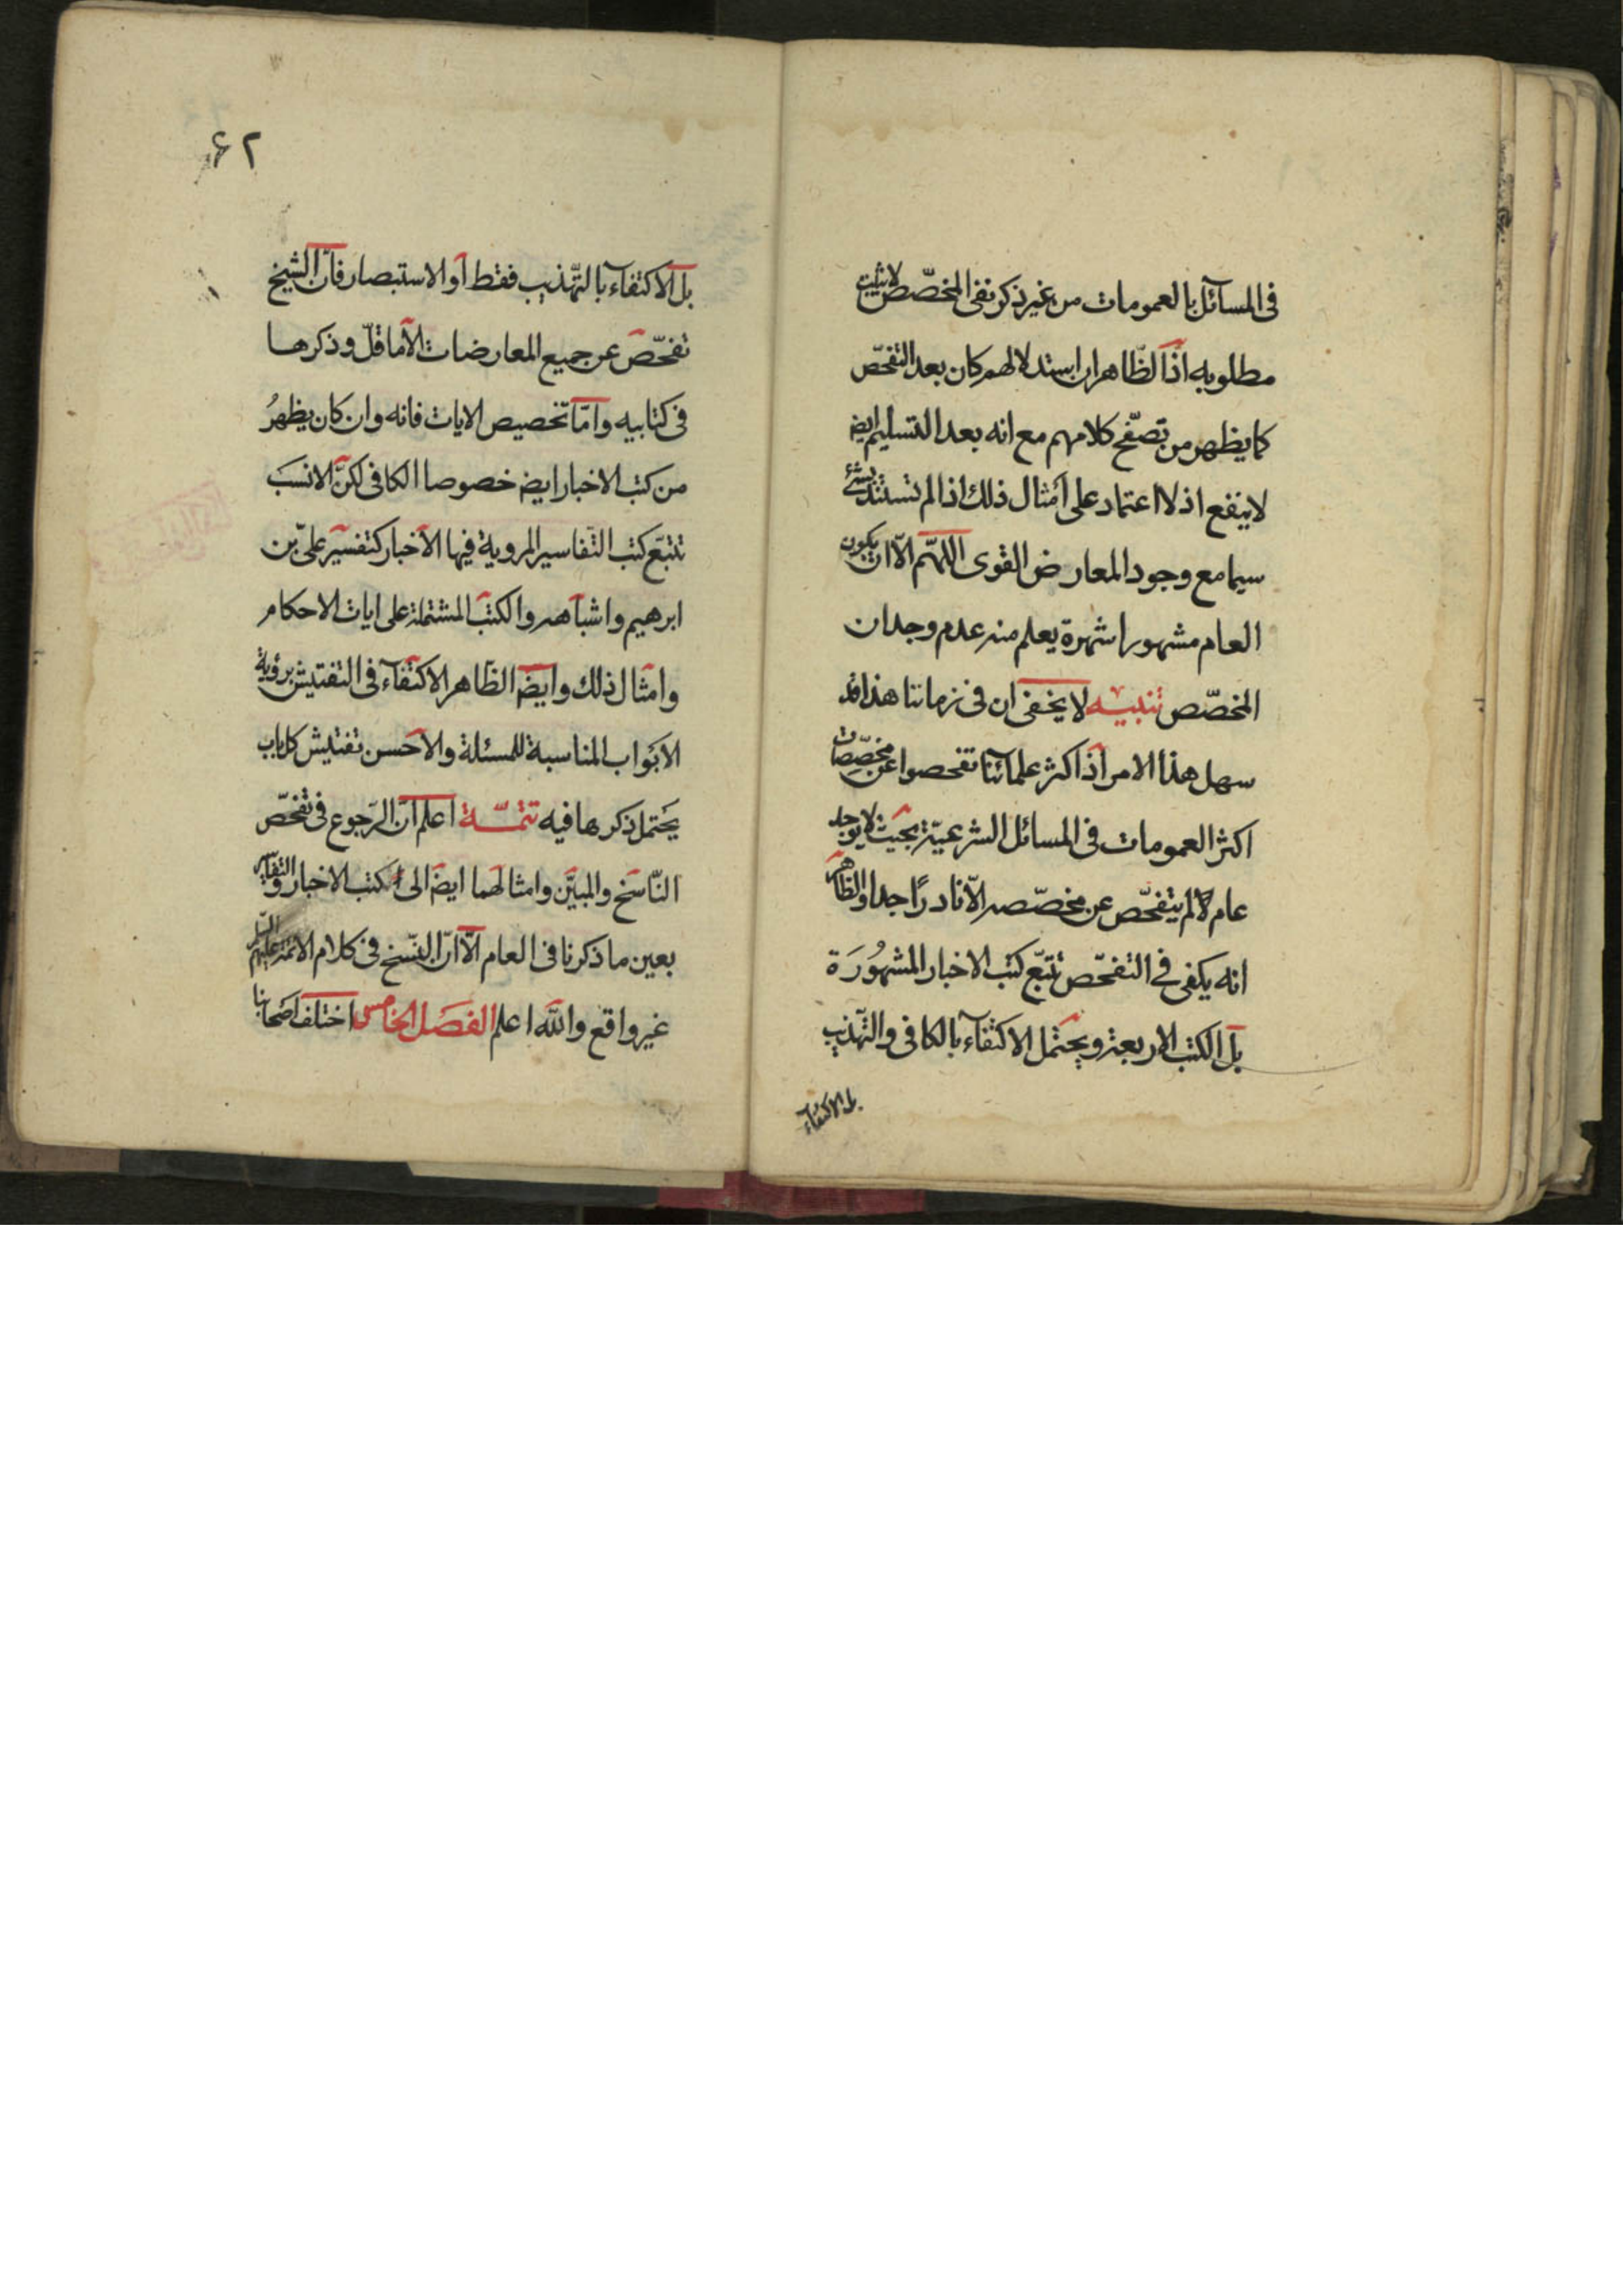 فى المسآئل بالعمومات من غير ذكر نفى المخصّص لا يثبت
مطلوبه اذ الظّاهر ان استدلالهم كان بعد التفحّص
كما يظهر من تصفّح كلامهم مع انه بعد التسليم ايض
لا ينفع اذ لا اعتماد على امثال ذلك اذا لم تستند بشئ
سيما مع وجود المعارض القوى اللهمّ الّا ان يكون
العام مشهورا شهرة يعلم منه عدم وجدان
المخصّص تنبيه لا يخفى ان فى زماننا هذا قد
سهل هذا الامر اذ اكثر علمآئنا تفحصوا عن مخصّصات
اكثر العمومات فى المسائل الشرعيّة بحيث لا يوجد
عام لم يتفحّص عن مخصّصه الّا نادرًا جدا والظاهر
انه يكفى فى التفحّص تتبّع كتب الاخبار المشهُورَة
بل الكتب الاربعة ويحتمل الاكتفآء بالكافى والتّهذيب
بل الاكتفاء
۶۲
بل الاكتفاء بالتّهذيب فقط او الاستبصار فانّ الشيخ
تفحّص عن جميع المعارضات الّا ما قلّ وذكرها
فى كتابيه وامّا تخصيص الايات فانه وان كان يظهرُ
من كتب الاخبار ايض خصوصا الكافى لكنّ الانسَب
تتبّع كتب التفاسير المروية فيها الاخبار كتفسير علىّ بن
ابرهيم واشباهه والكتب المشتملة على ايات الاحكام
وامثال ذلك وايضَ الظّاهر الاكتفآء فى التفتيش برؤية
الابواب المناسبة للمسئلة والاحسن تفتيش كل باب
يحتمل ذكرها فيه تتمّـة اعلم انّ الرّجوع فى تفحّص
النّاسخ والمبيَّن وامثالهما ايضَ الى كتب الاخبار والتفاسير
بعين ما ذكرنا فى العام الّا انّ النّسخ فى كلام الائمة عليهم
غير واقع والله اعلم الفصَل الخامس اختلف اصحابنا